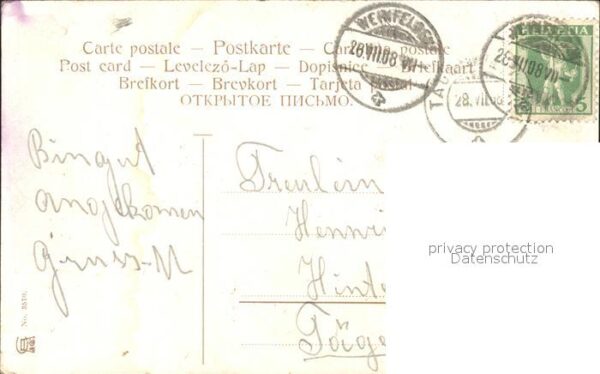 Carte postale — Postkarte — Cartolina postale
Post card — Levelező-Lap — Dopisnice — Briefkaart
Brefkort — Brevkort — Tarjeta postal
ОТКРЫТОЕ ПИСЬМО.
WEINFELDEN
28.VII.08.VII
28.VII.08
HELVETIA
28.VII.08.VII
5
Bin gut
angekomen
Gruss-M
Freulein
Henri
Hinte
Täge
privacy protection
Datenschutz
No. 3510.